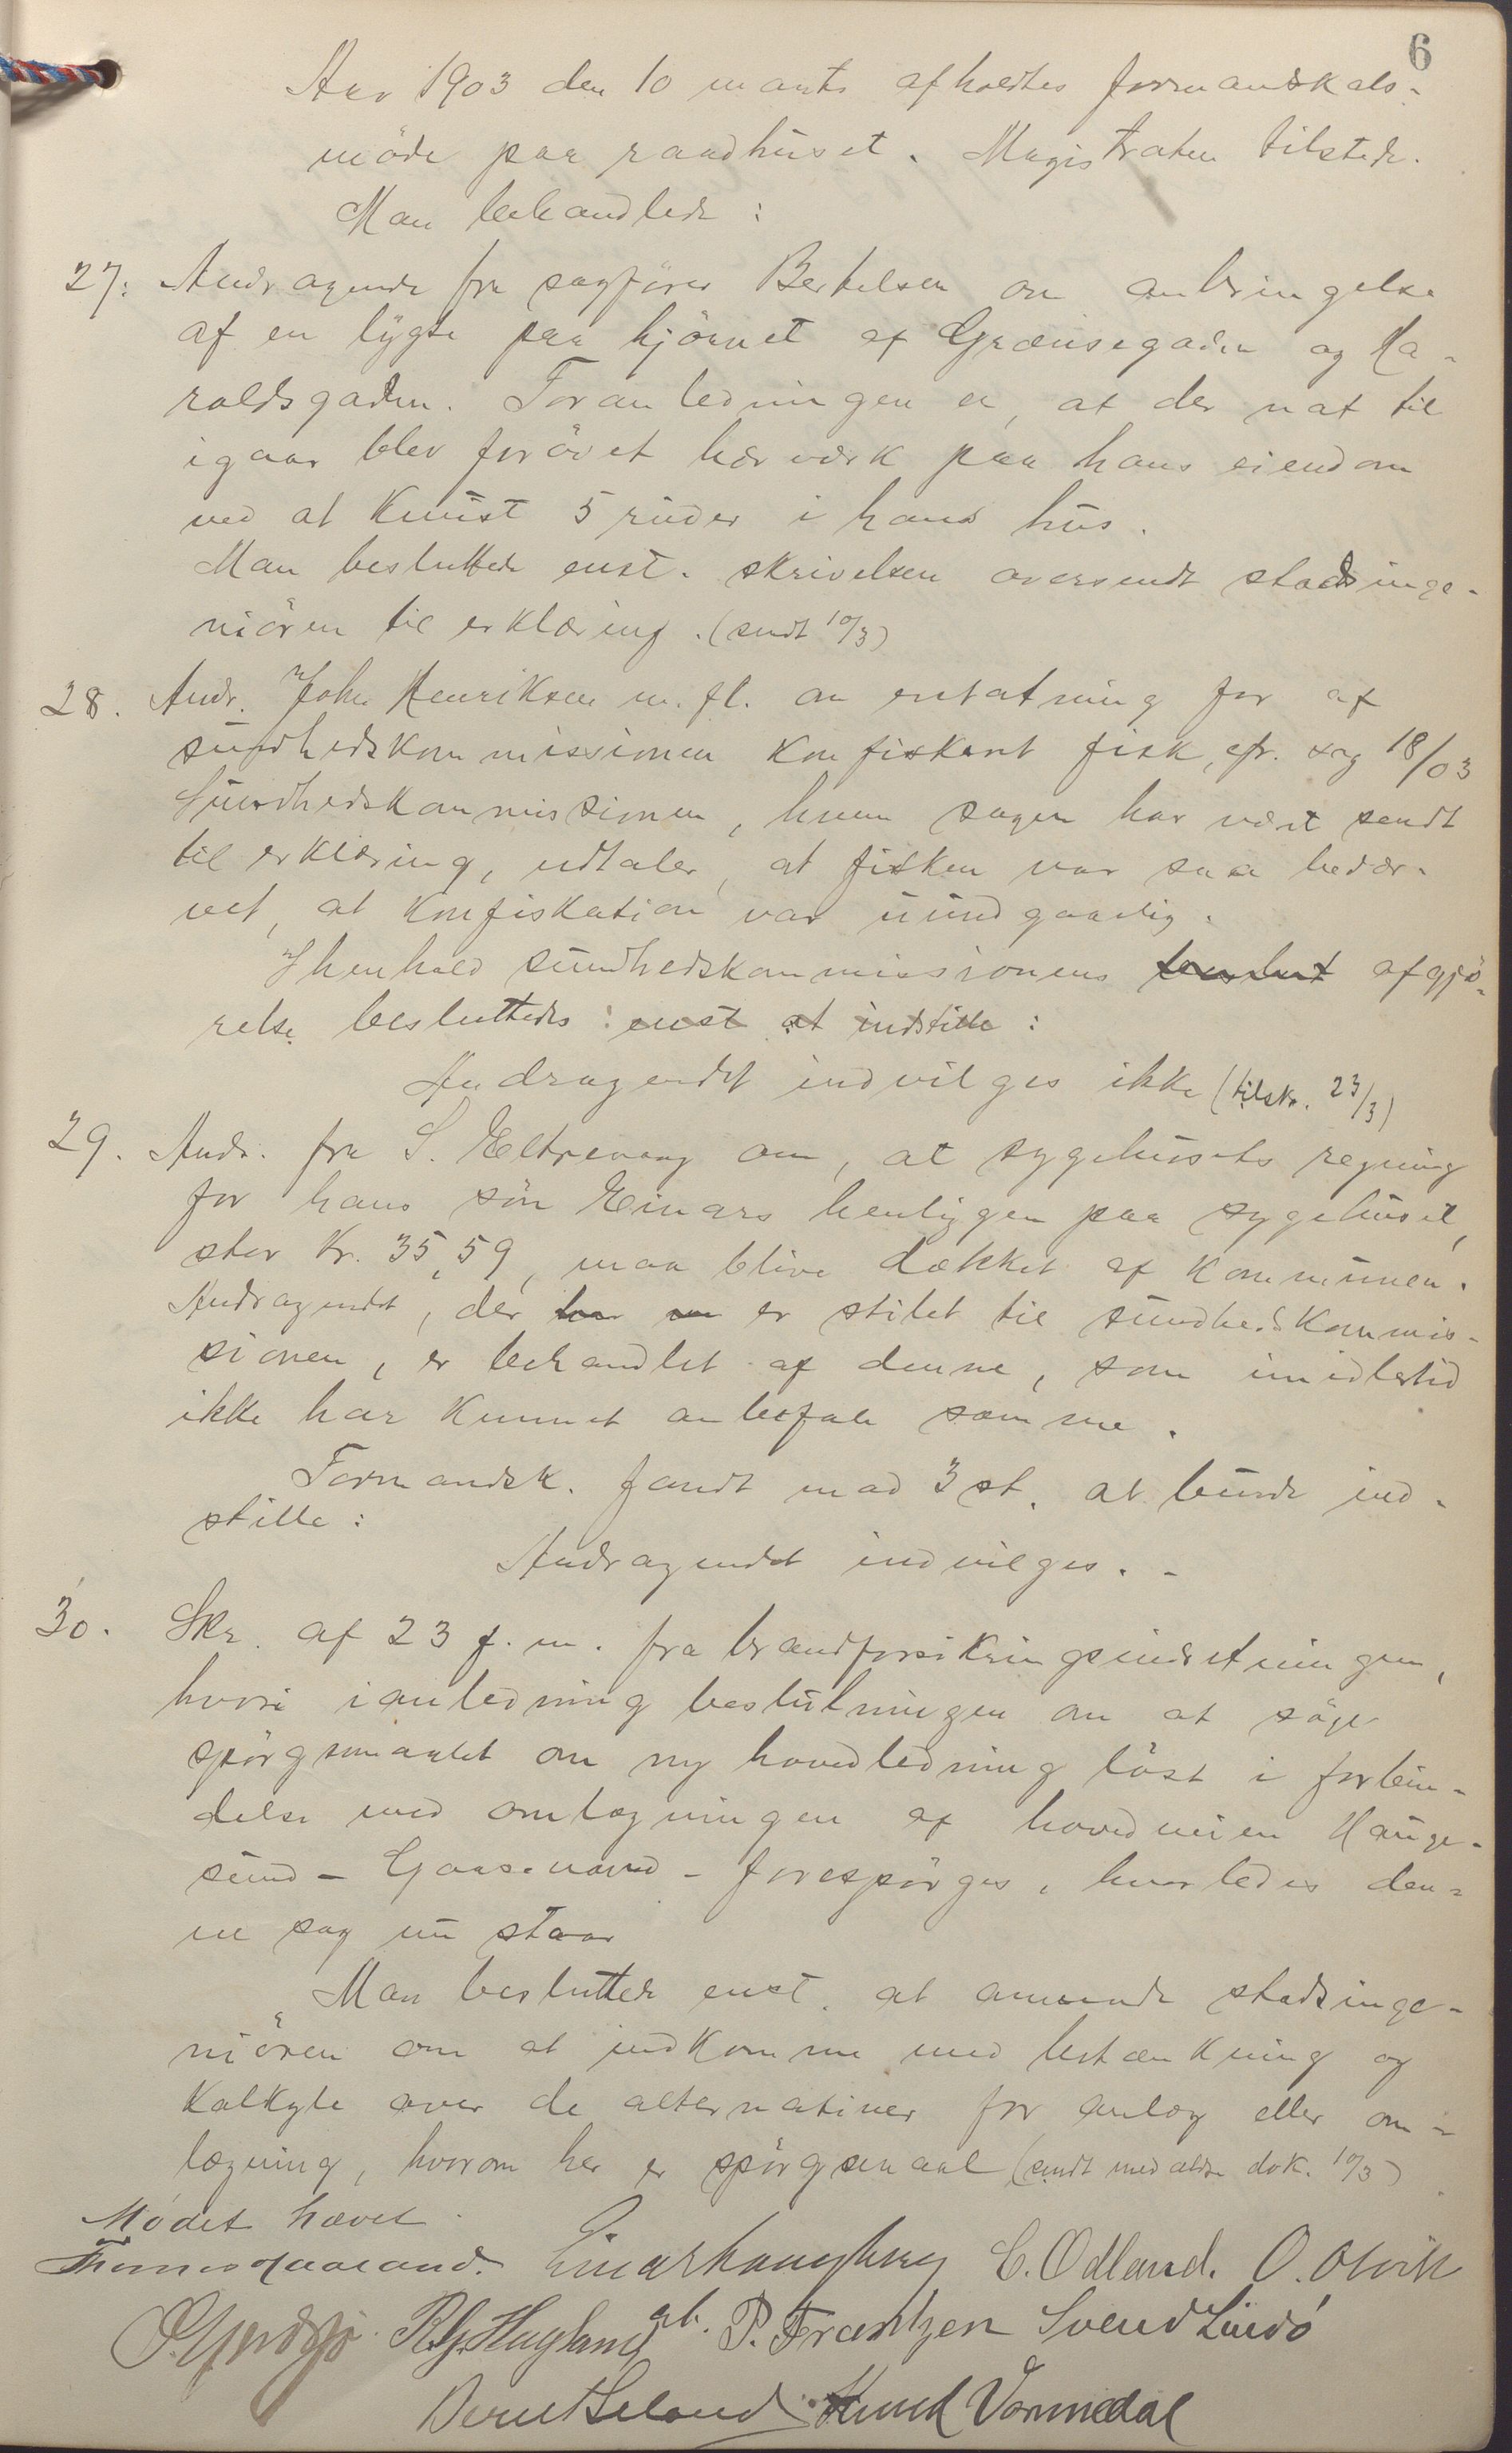 6
Aar 1903 den 10 marts afholdtes formandskabs-
möde paa raadhuset. Magistraten tilstede.
Man behandlede:
27. Andragende fra sagförer Bertelsen om anbringelse
af en lygte paa hjörnet af Grænsegaden og Ha-
raldsgaden. Foranledningen er, at der nat til
igaar blev forövet hærværk paa hans eiendom
ved at knust 5 ruder i hans hus.
Man besluttede enst. skrivelsen oversendt stadsinge-
niören til erklæring. (sendt 10/3)
28. Andr. John Henriksen m. fl. om erstatning for af
sundhedskommissionen konfiskert fisk, cfr. sag 18/03
Sundhedskommissionen, hvem sagen har vært sendt
til erklæring, udtaler, at fisken var saa bedær-
vet, at konfiskation var uundgaaelig.
Ihenhold sundhedskommissionens beslut afgjö-
relse besluttedes: enst at indstille:
Andragendet indvilges ikke (tilskr. 23/3)
29. Andr. fra S. Eltrevaag om, at sygehusets regning
for hans sön Einars henliggen paa sygehuset,
stor Kr. 35,59, maa blive dækket af kommunen.
Andragendet, der er stilet til sundhedskommis-
sionen, er behandlet af denne, som imidlertid
ikke har kunnet anbefale samme.
Formandsk. fandt mod 3 st. at burde ind-
stille:
Andragendet indvilges. -
30. Skr. af 23 f. m. fra brandforsikringsindretningen,
hvori ianledning beslutningen om at söge
spörgsmaalet om ny hovedledning löst i forbin-
delse med omlægningen af hovedveien Hauge-
sund - Gaasevand - forespörges, hvorledes den-
ne sag nu staar
Man besluttede enst. at anmode stadsinge-
niören om at indkomme med betænkning og
kalkyle over de alternativer for anlæg eller om-
lægning, hvorom her er spörgsmaal (sendt med ældre dok. 10/3)
Mödet hævet.
Thomas Haaland. Einar Haugberg C. Odland. O. Olvik
R. G. Hagland P. Frantzen Svend Lindö
Bernt Seland Knud Vormedal